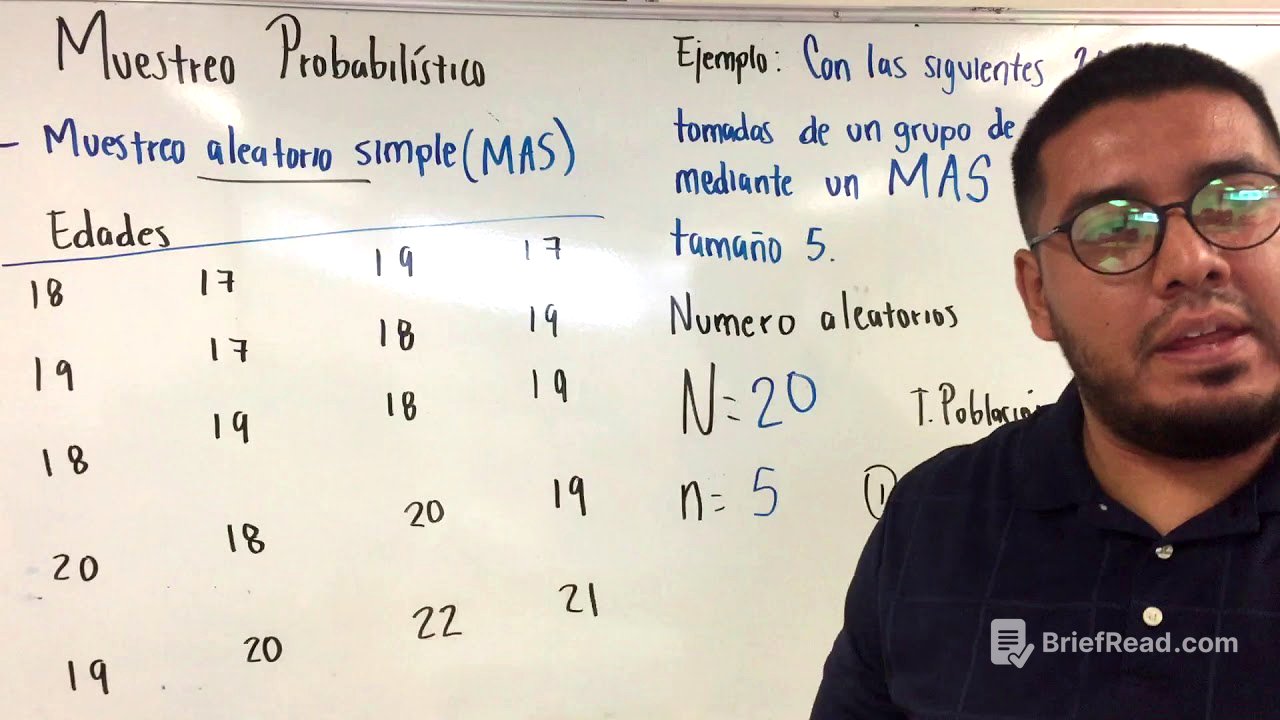 Muestreo Probabilístico
- Muestreo aleatorio simple (MAS)
Edades
18 17 19 17
19 17 18 19
18 19 18 19
20 18 20 19
19 20 22 21
Ejemplo: Con las siguientes
tomadas de un grupo de
mediante un MAS
tamaño 5.
Numero aleatorios
N = 20 T. Población
n = 5 1
BriefRead.com